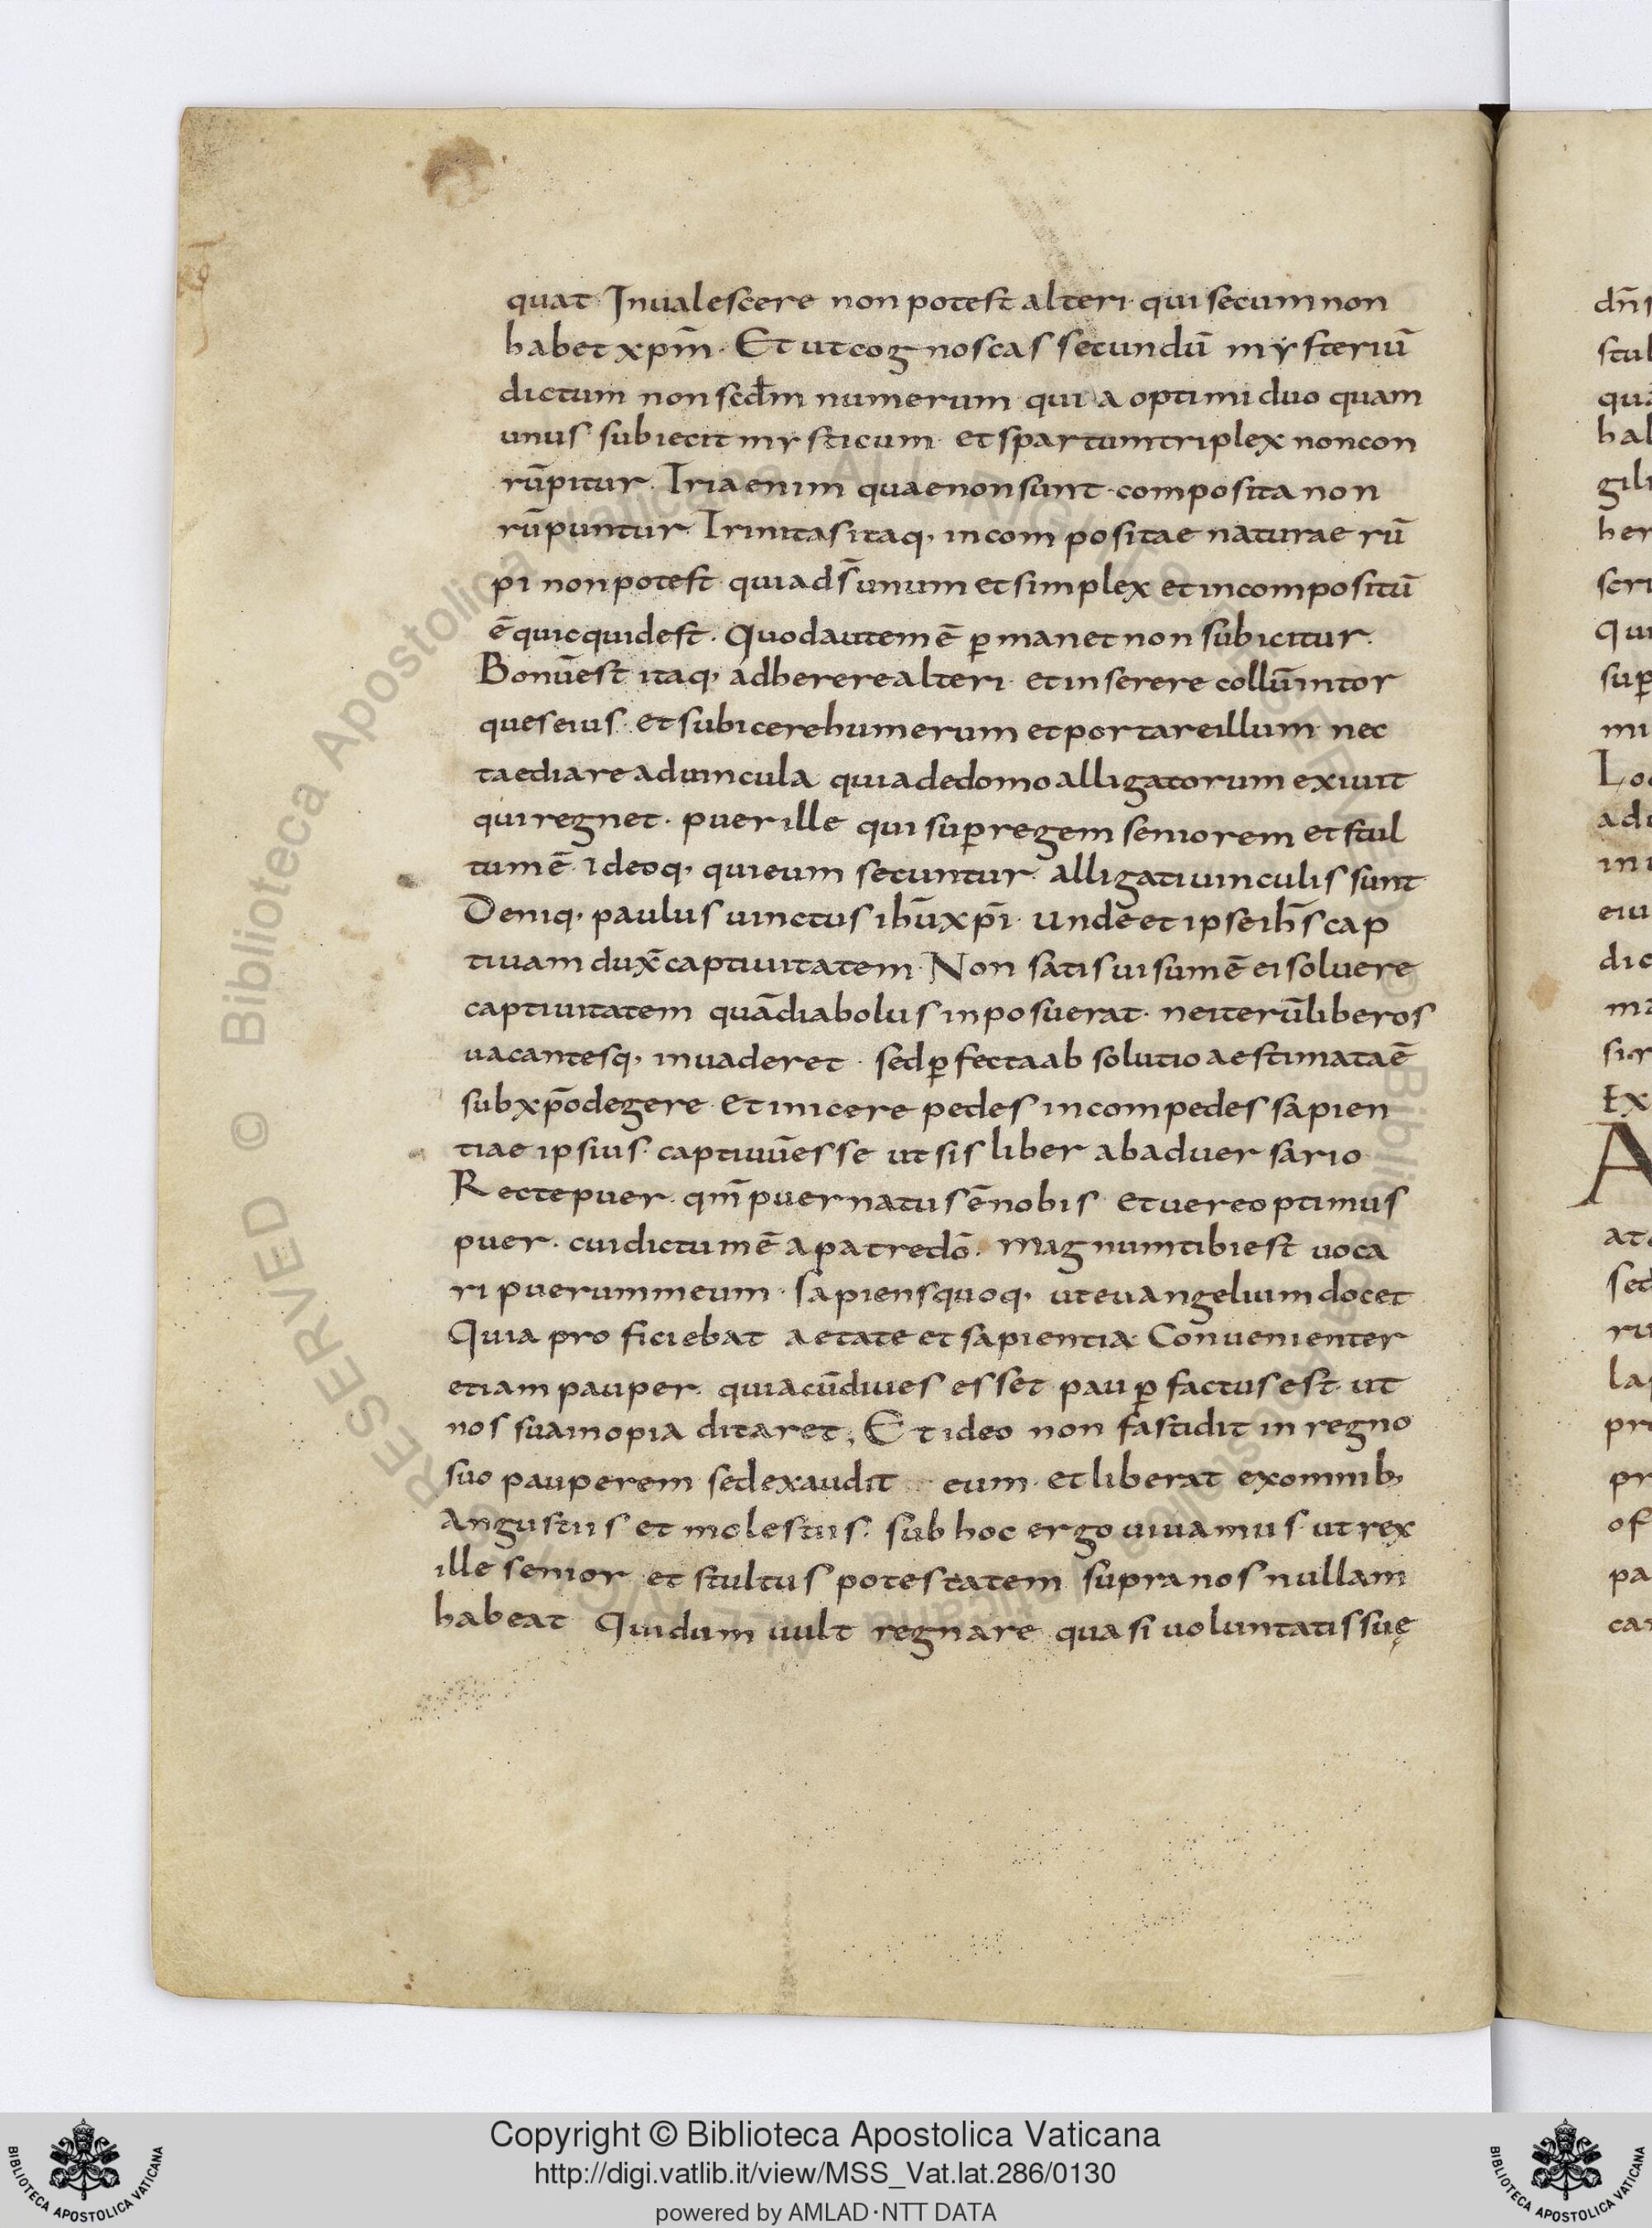 quat Inualescere non potest alteri· qui secum non
habet xp̄m· Et ut cognoscas secundū mysteriū
dictum non scd̄m numerum quia optimi duo quam
unus subiecit mysticum· et spartum triplex non con
rūpitur· Tria enim quae non sunt· composita non
rūpuntur· Trinitas itaq; incompositae naturae rū
pi non potest· quia d̄s unum et simplex et incompositū
ē quicquid est· Quod autem ē ꝑmanet non subicitur·
Bonū est itaq; adherere alteri· et inserere collū in tor
ques eius· et subicere humerum et portare illum· nec
taediare ad uincula quia de domo alligatorum exiuit
qui regnet· puer ille qui suꝑ regem seniorem et stul
tum ē· ideoq; qui eum secuntur alligati uinculis sunt
Deniq; paulus uinctus ih̄u xp̄i· unde et ipse ih̄s cap
tiuam dux̄ captiuitatem· Non satis uisum ē ei soluere
captiuitatem quā diabolus inposuerat· ne iterū liberos
uacantesq; inuaderet· sed ꝑfecta absolutio aestimata ē
sub xp̄o degere et inicere pedes in compedes sapien
tiae ipsius· captiuū esse ut sis liber ab aduersario
Recte puer· qm̄ puer natus ē nobis et uere optimus
puer· cui dictum ē a patre dō· magnum tibi est uoca
ri puerum meum· sapiens quoq; ut euangelium docet
Quia proficiebat aetate et sapientia· Conuenienter
etiam pauper· quia cū diues esset pauꝑ factus est· ut
nos sua inopia ditaret; Et ideo non fastidit in regno
suo pauperem sed exaudit eum· et liberat ex omnib;
angustiis et molestiis· sub hoc ergo uiuamus ut rex
ille senior et stultus potestatem supra nos nullam
habeat Qui dum uult regnare quasi uoluntatis suę
dn̄s
stul
qua
hab
gili
her
scri
qui
suꝑ
mi
Lo
ad
in
eiu
dic
ma
sic
Ex
A
at
sed
ru
la
pr
pr
of
pa
car
© Biblioteca Apostolica Vaticana ALL RIGHTS RESERVED
BIBLIOTECA APOSTOLICA VATICANA
Copyright © Biblioteca Apostolica Vaticana
http://digi.vatlib.it/view/MSS_Vat.lat.286/0130
powered by AMLAD·NTT DATA
BIBLIOTECA APOSTOLICA VATICANA